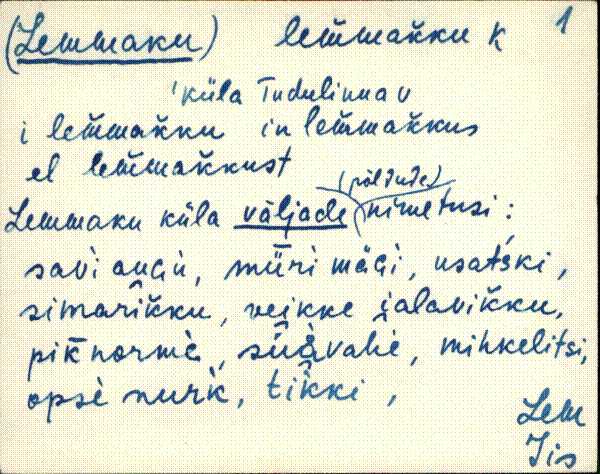 (Lemmaku) lem̆mak̆ku K 1
'küla Tudulinna v
i lem̆mak̆ku in lem̆mak̆kus
el lem̆mak̆kust
(põldude)
Lemmaku küla väljade nimetusi :
savi auGù, mǖri mäGi, usatški,
simarik̆ku, veikke jalavik̆ku,
pik̄ normè, sūrvahè, mihkelitsi,
opsè nurk̀, tik̆ki ,
Lem
Iis